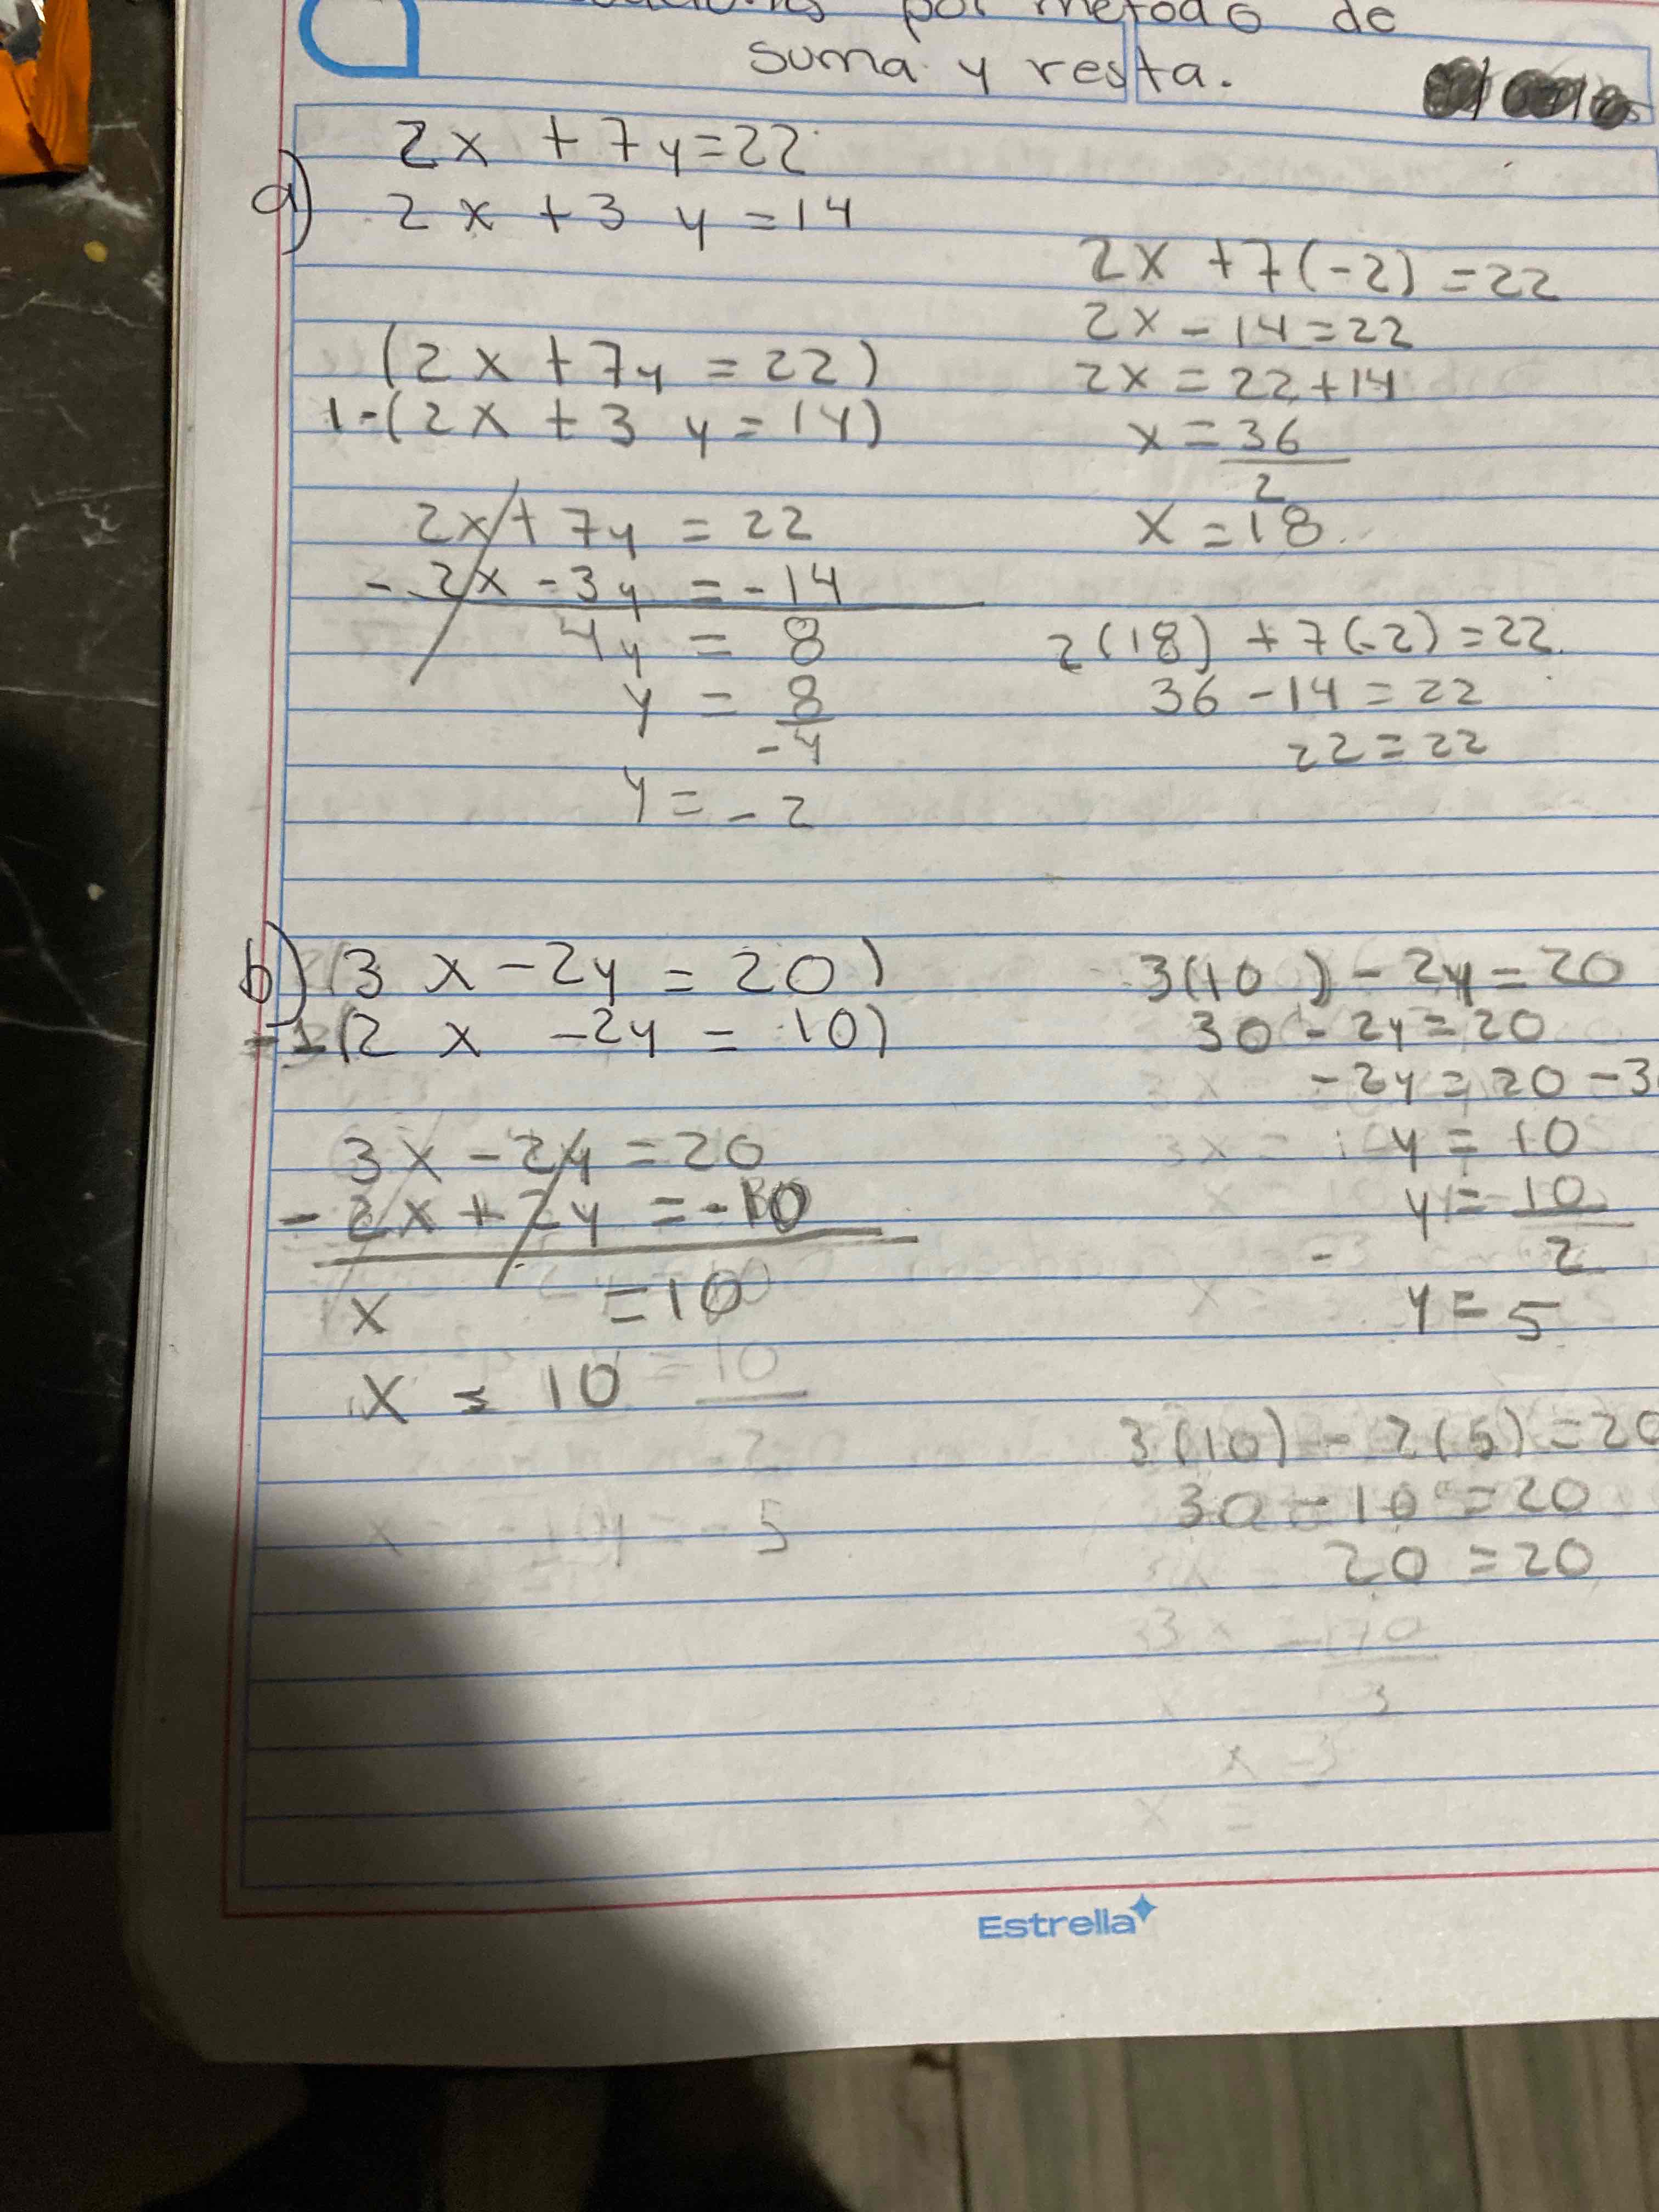 por metodo de
suma y resta.
a)
2x + 7y=22
2x + 3y = 14
(2x + 7y = 22)
1-(2x + 3y = 14)
2x + 7y = 22
- 2x - 3y = -14
4y = 8
y = 8
-4
y = - 2
2x + 7(-2) = 22
2x - 14 = 22
2x = 22 + 14
x = 36
2
x = 18
2(18) + 7(-2) = 22
36 - 14 = 22
22 = 22
b) (3x - 2y = 20)
-1(2x - 2y = 10)
3x - 2y = 20
- 2x + 2y = -10
x = 10
x = 10
3(10) - 2y = 20
30 - 2y = 20
-2y = 20 - 3
y = 10
y = 10
- 2
y = 5
3(10) - 2(5) = 20
30 - 10 = 20
20 = 20
Estrella